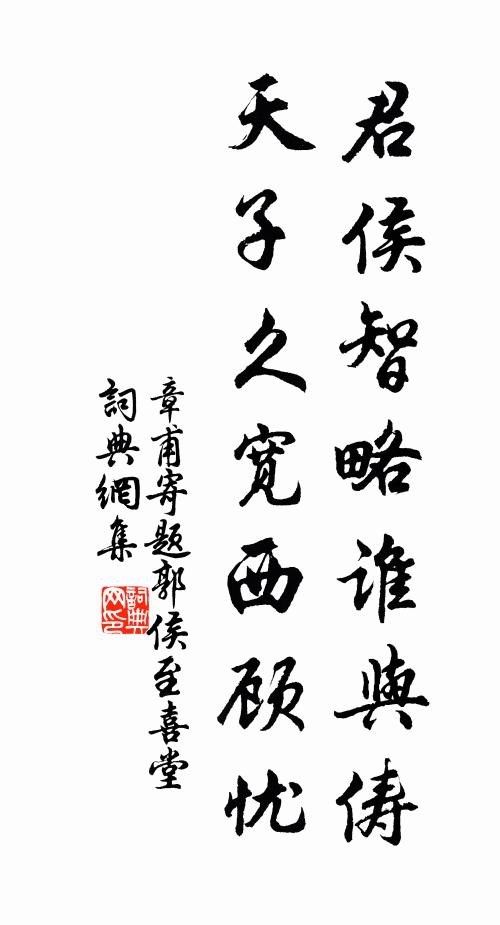 君侯智略谁與俦
天子久宽西顾忧
章甫寄题郭侯至喜堂
詞典網集
詞典网印